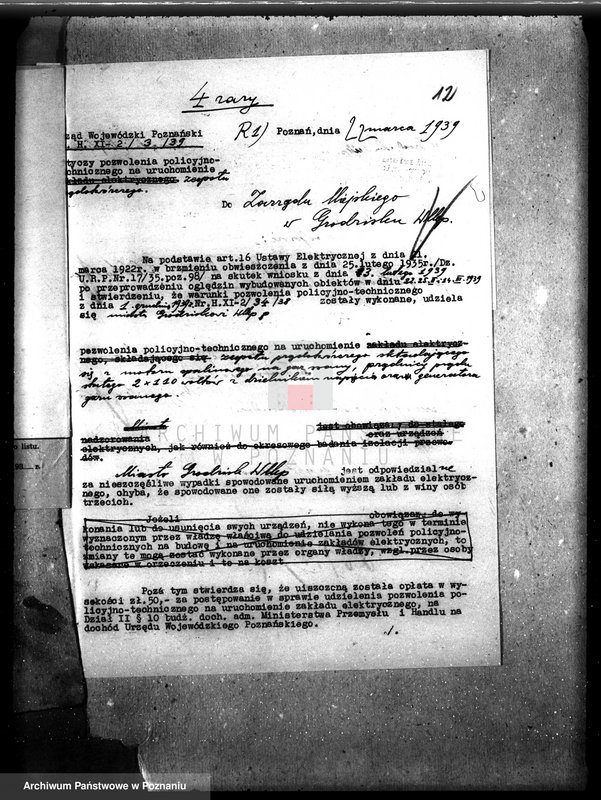 4 razy
12
ząd Wojewódzki Poznański
. H. XI- 2/ 3 /39
R1) Poznań,dnia marca 1939
tyczy pozwolenia policyjno-
chnicznego na uruchomienie
kładu elektrycznego. zespołu
Do Zarządu Miejskiego
w Grodzisku Wlkp.
Na podstawie art.16 Ustawy Elektrycznej z dnia 21.
marca 1922r. w brzmieniu obwieszczenia z dnia 25.lutego 1935r./Dz.
U.R.P.Nr.17/35.poz.98/ na skutek wniosku z dnia 13. lutego 1939
po przeprowadzeniu oględzin wybudowanych obiektów w dniu
i stwierdzeniu, że warunki pozwolenia policyjno-technicznego
z dnia 1. grudnia Nr.H.XI-2/ 34 /38 zostały wykonane, udziela
się miastu Grodziskowi Wlkp
pozwolenia policyjno-technicznego na uruchomienie zakładu elektrycz-
nego, składającego się zespołu prądotwórczego składającego
się z motoru spalinowego na gaz ssany, prądnicy prądu
stałego 2 x 110 voltów z dzielnikiem napięcia oraz generatora
gazu ssanego.
Miasto jest obowiązany do stałego
nadzorowania oraz urządzeń
elektrycznych, jak również do okresowego badania izolacji przewo-
dów.
Miasto Grodzisk Wlkp jest odpowiedzialne
za nieszczęśliwe wypadki spowodowane uruchomieniem zakładu elektrycz-
nego, chyba, że spowodowane one zostały siłą wyższą lub z winy osób
trzecich.
Jeżeli obowiązany do wy-
konania lub do usunięcia swych urządzeń, nie wykona tego w terminie
wyznaczonym przez władzę właściwą do udzielania pozwoleń policyjno-
technicznych na budowę i na uruchomienie zakładów elektrycznych, to
zmiany te mogą zostać wykonane przez organy władzy, wzgl.przez osoby
wskazane w orzeczeniu i to na koszt
Poza tym stwierdza się, że uiszczoną została opłata w wy-
sokości zł.50,- za postępowanie w sprawie udzielenia pozwolenia po-
licyjno-technicznego na uruchomienie zakładu elektrycznego, na
Dział II § 10 budż. doch. adm. Ministerstwa Przemysłu i Handlu na
dochód Urzędu Wojewódzkiego Poznańskiego.
./.
o listu.
93 r.
ARCHIWUM PAŃSTWOWE
W POZNANIU
Archiwum Państwowe w Poznaniu